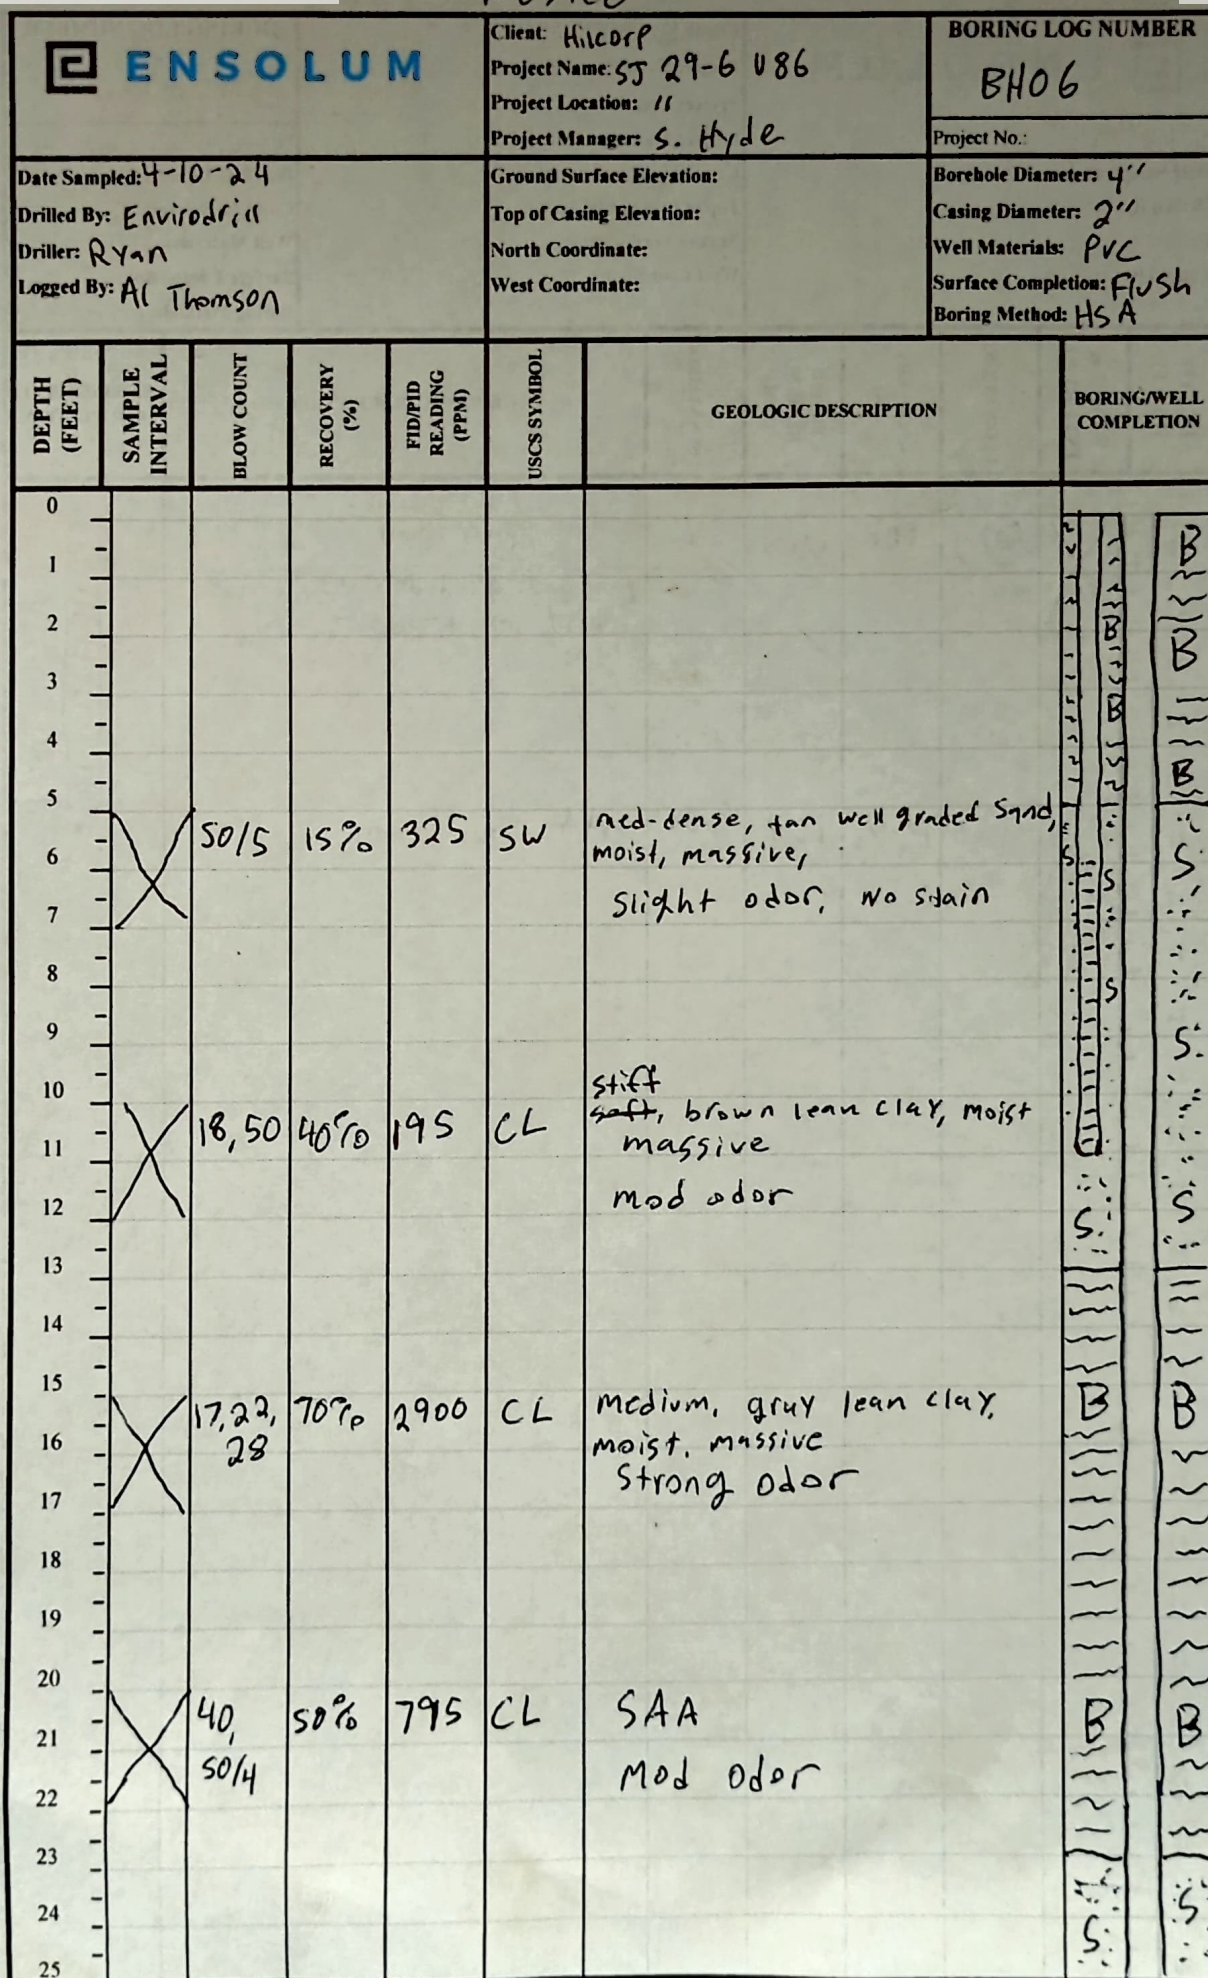 ENSOLUM
Client: Hilcorp
Project Name: SJ 29-6 U86
Project Location: "
Project Manager: S. Hyde
BORING LOG NUMBER
BH06
Project No.:
Date Sampled: 4-10-24
Drilled By: Envirodrill
Driller: Ryan
Logged By: Al Thomson
Ground Surface Elevation:
Top of Casing Elevation:
North Coordinate:
West Coordinate:
Borehole Diameter: 4"
Casing Diameter: 2"
Well Materials: PVC
Surface Completion: Flush
Boring Method: HSA
DEPTH (FEET)
SAMPLE INTERVAL
BLOW COUNT
RECOVERY (%)
FID/PID READING (PPM)
USCS SYMBOL
GEOLOGIC DESCRIPTION
BORING/WELL COMPLETION
0
B
1
2
B B
3
B
4
B
5
50/5 15% 325 SW med-dense, tan well graded sand,
6 moist, massive, S S
slight odor, no stain S
7
8
S
9
S
10
stiff
soft, brown lean clay, moist
18,50 40% 195 CL
11 massive
12 mod odor S
S
13
14
15
17,22, 70% 2900 CL medium, gray lean clay, B B
16 28 moist, massive
Strong odor
17
18
19
20
40, 50% 795 CL SAA B B
21
50/4 Mod odor
22
23
24 S
S
25